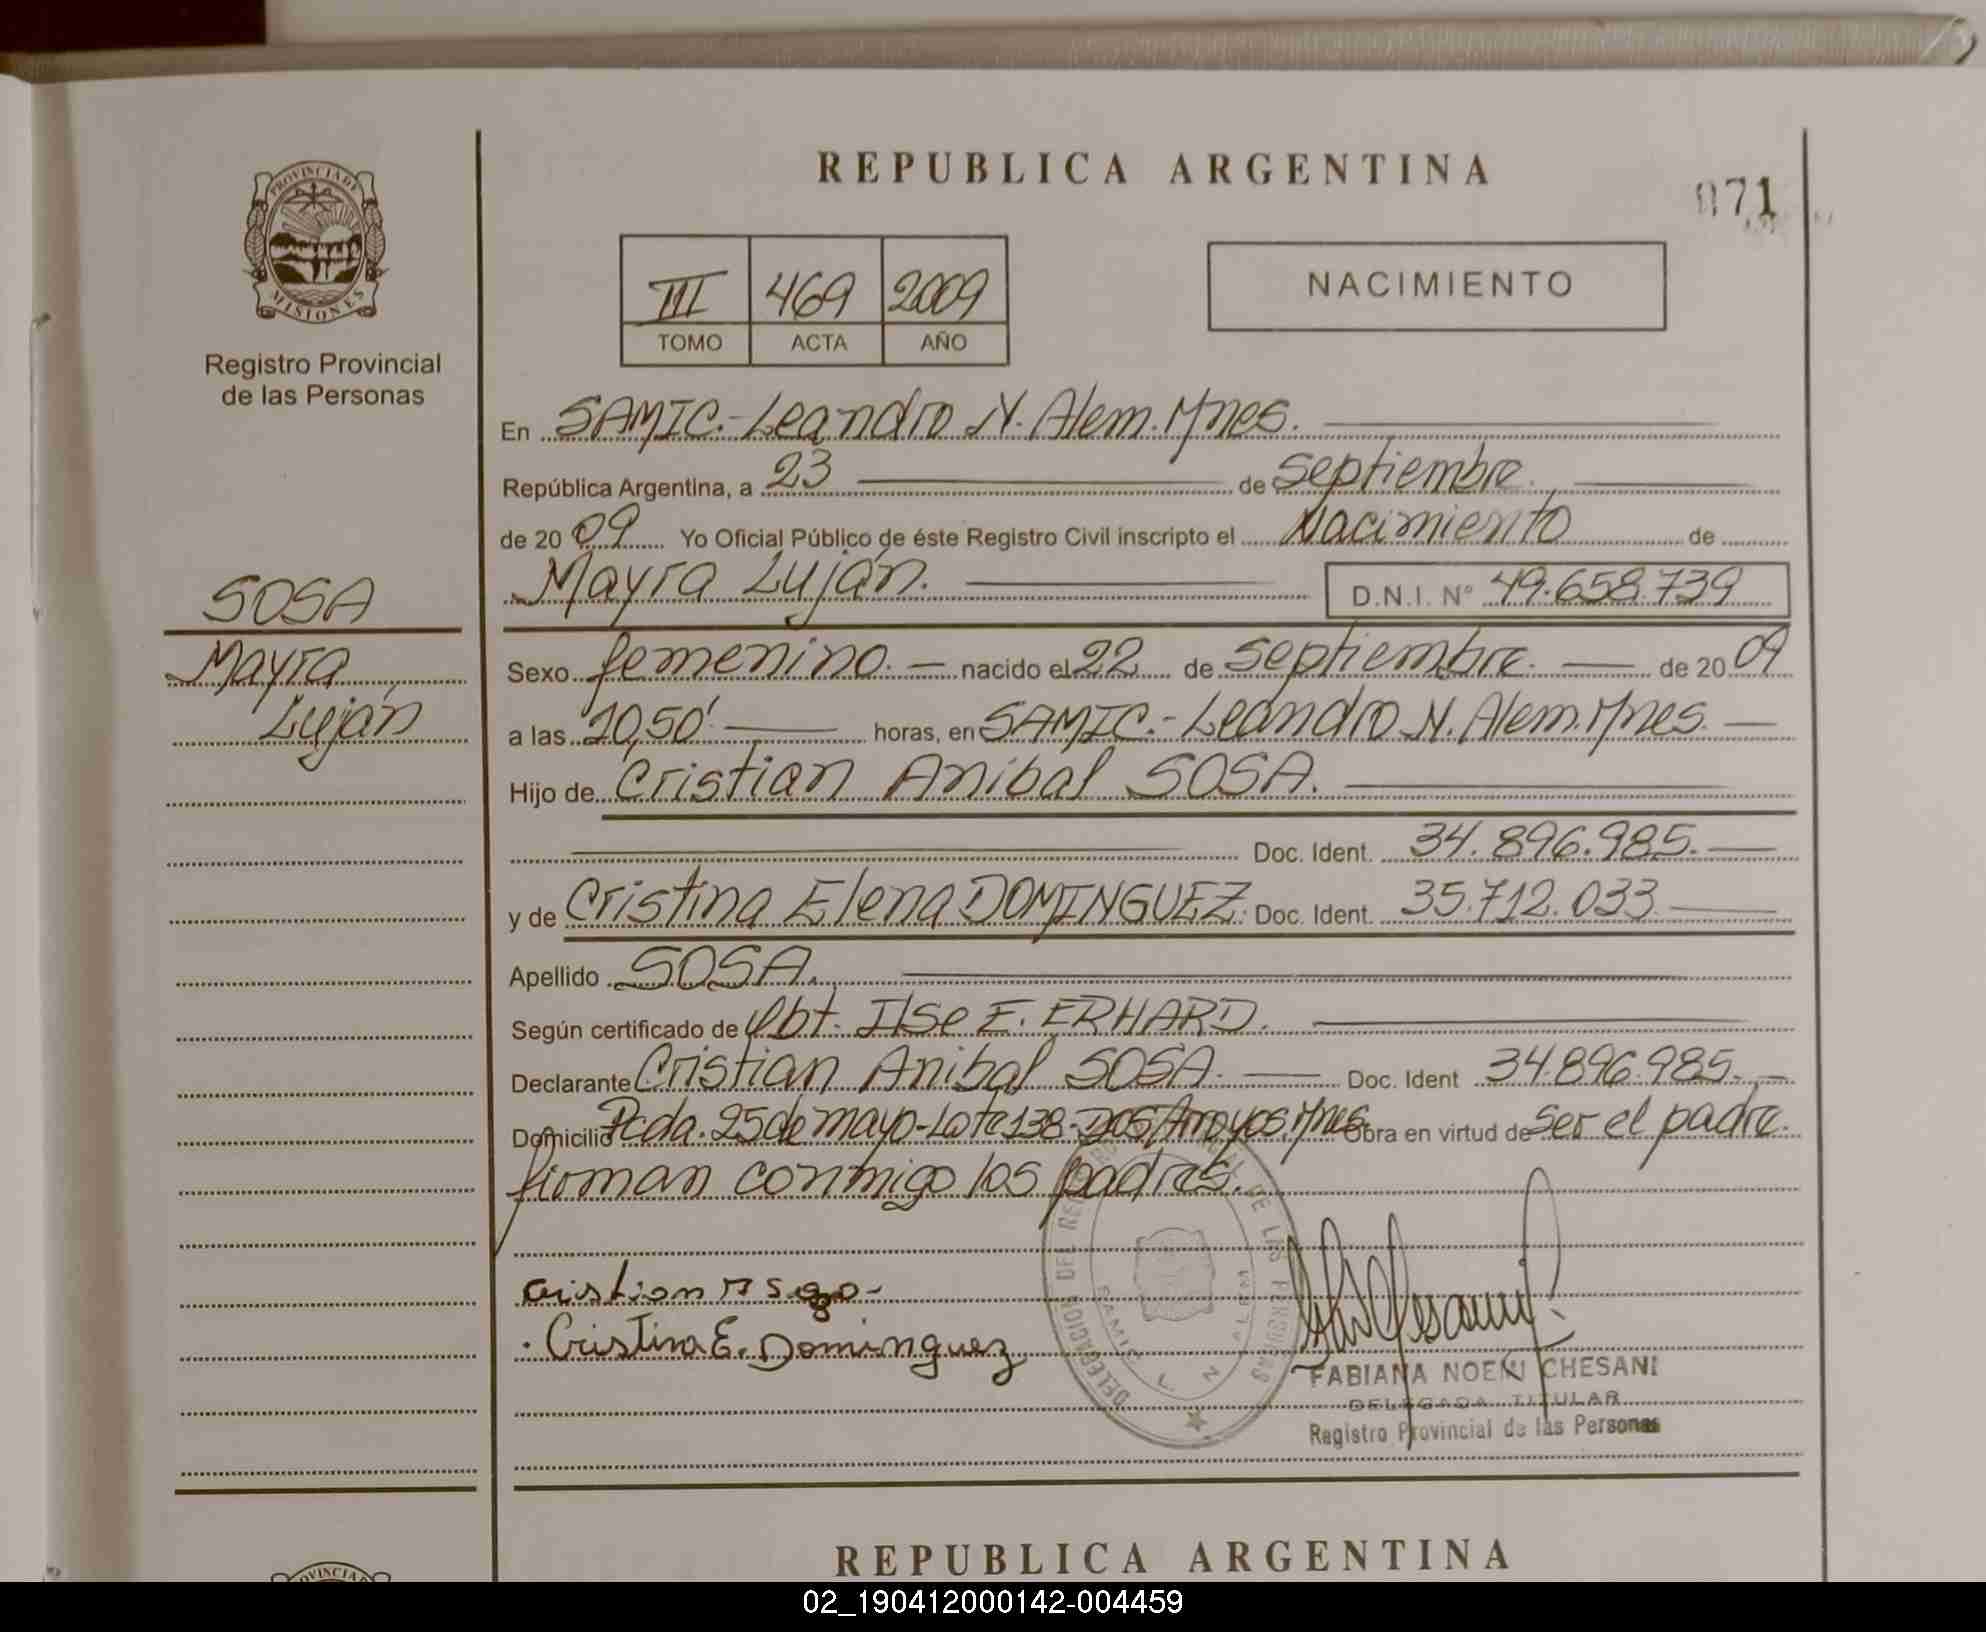 REPUBLICA ARGENTINA
071
PROVINCIA DE
MISIONES
Registro Provincial
de las Personas
III 469 2009
TOMO ACTA AÑO
NACIMIENTO
En SAMIC.- Leandro N. Alem. Mnes.
República Argentina, a 23 de Septiembre.
de 2009 Yo Oficial Público de éste Registro Civil inscripto el Nacimiento de
Mayra Luján. D.N.I. N° 49.658.739
SOSA
Mayra
Luján
Sexo femenino. nacido el 22 de Septiembre. de 2009
a las 10,50' horas, en SAMIC.- Leandro N. Alem. Mnes.
Hijo de Cristian Anibal SOSA.
Doc. Ident. 34.896.985.
y de Cristina Elena DOMINGUEZ. Doc. Ident. 35.712.033
Apellido SOSA.
Según certificado de Obt. Ilse E. ERHARD.
Declarante Cristian Anibal SOSA. Doc. Ident 34.896.985.
Domicilio Pcda. 25 de mayo-Lote 138-DOS Arroyos, Mnes. Obra en virtud de ser el padre.
firman conmigo los padres.
Cristina E. Dominguez
DELEGACION DEL DE LAS PERSONAS
SAMIC L. N. ALEM
FABIANA NOEMI CHESANI
DELEGADA TITULAR
Registro Provincial de las Personas
REPUBLICA ARGENTINA
02_190412000142-004459